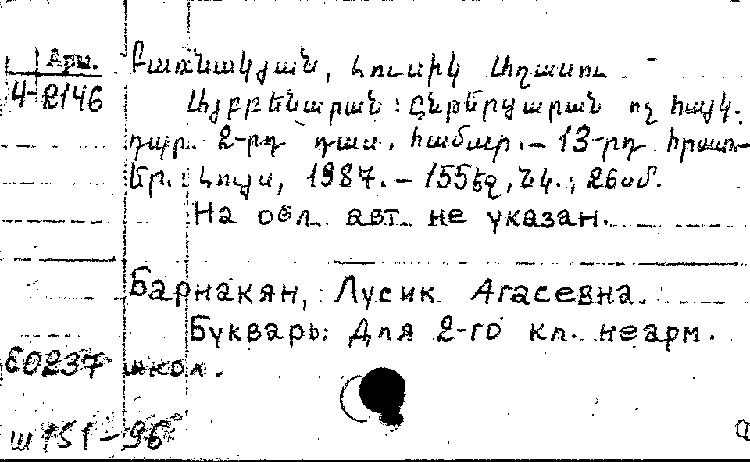 Арм.
4-2146
Բառնակյան, Լուսիկ Աղասու
Այբբենարան: Ընթերցարան ոչ հայկ.
դպր. 2-րդ դաս. համար.– 13-րդ հրատ–
Եր.: Լույս, 1987.– 155 էջ, նկ.; 26 սմ.
На обл. авт. не указан.
Барнакян, Лусик Агасевна.
Букварь: Для 2-го кл. неарм.
60237 школ.
ш 151-96